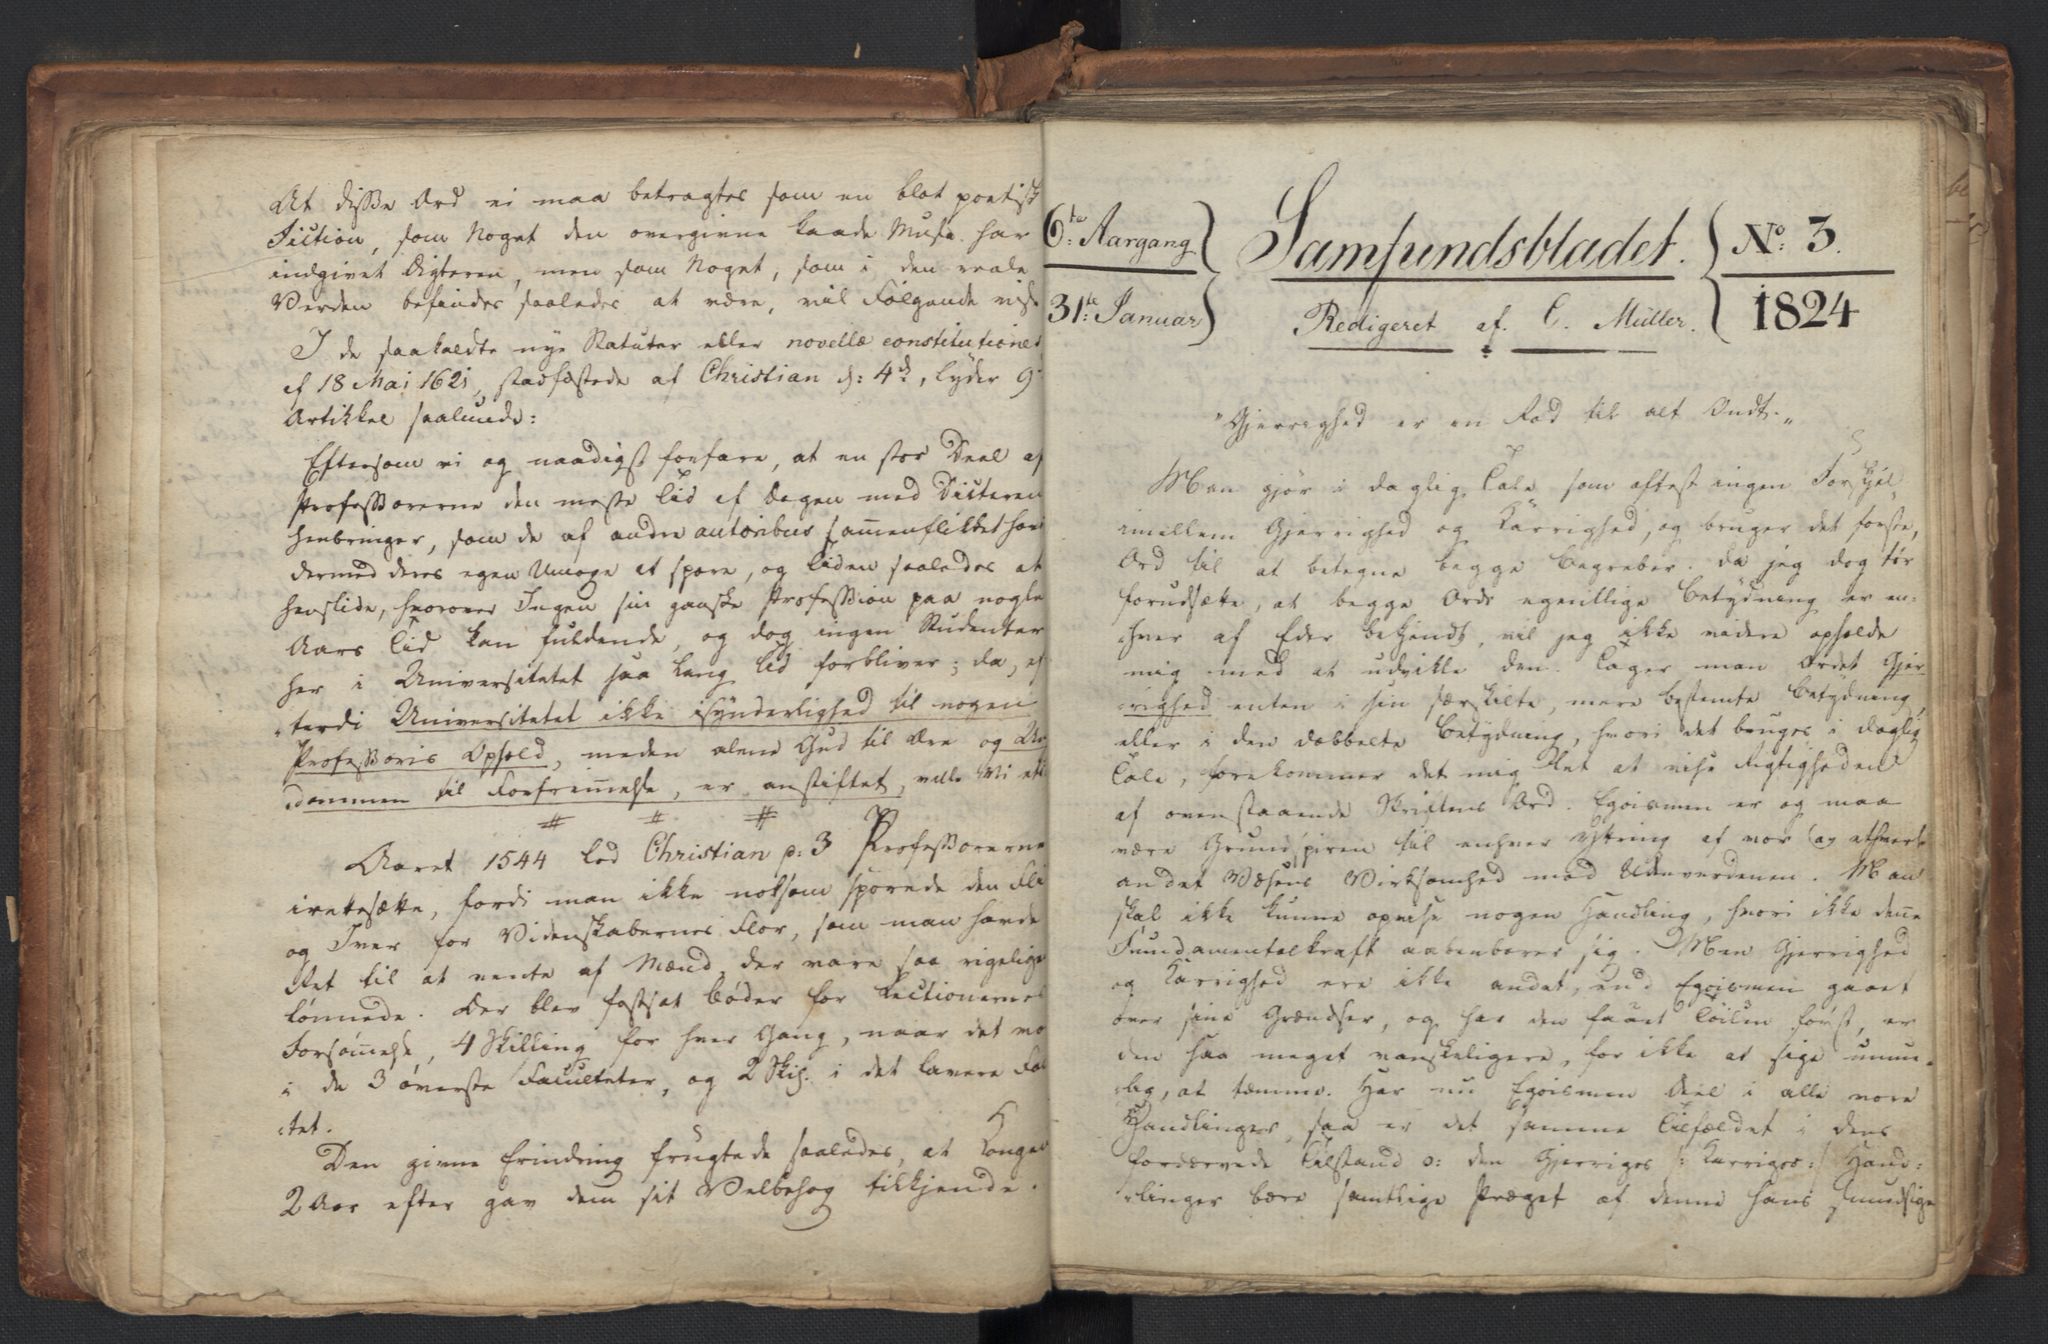 At disse Ord ei maa betragtes som en blot poetisk
Fiction, som Noget den overgivne kaade Musa har
indgivet Digteren, men som Noget, som i den reale
Verden befindes saaledes at være, vil Følgende vise
I de saakaldte nye Statuter eller novellæ constitutiones
af 18 Mai 1621, stadfæstede af Christian d: 4de, lyder 9
Artikkel saalunde:
Eftersom vi og naadigst forfare, at en stor Deel af
Professorerne den meste Tid af Dagen med Dicteren
henbringer, som de af andre autoribus sam̄enflikket have
dermed deres egen Umage at spare, og Tiden saaledes at
henslide, hvorover Ingen sin ganske Profession paa nogle
Aars Tid kan fuldende, og dog ingen Studenter
her i Universitetet saa lang Tid forbliver; da, ef
terdi Universitetet ikke isynderlighed til nogen
Professoris Ophold, meden alene Gud til Ære og Un
dommen til Forfrem̄else, er anstiftet, ville Vi etc
# # #
Aaret 1544 lod Christian p: 3 Professorerne
irettesætte, fordi man ikke noksom sporede den Fli
og Iver for Videnskabernes Flor, som man havde
Ret til at vente af Mænd, der vare saa rigelige
lønnede. Der blev fastsat Bøder for Lectionernes
Forsøm̄else, 4 Skilling for hver Gang, naar det va
i de 3 øverste Faculteter, og 2 Skil. i det lavere Fal
tet.
Den givne Erindring frugtede saaledes, at Kongen
2 Aar efter gav dem sit Velbehag tilkjende.
6te Aargang
31te Januar
Samfundsbladet.
Redigeret af. C. Müller.
No: 3.
1824
"Gjerrighed er en Rod til alt Ondt."
Man gjør i daglig Tale som oftest ingen Forskjel
imellem Gjerrighed og Karrighed, og bruger det første
Ord til at betegne begge Begreber. Da jeg dog tør
forudsætte, at begge Ords egentlige Betydning er en-
hver af Eder bekjendt, vil jeg ikke videre opholde
mig med at udvikle den. Tager man Ordet Gjer
righed enten i sin særskilte, mere bestemte Betydning,
eller i den dobbelte Betydning, hvori det bruges i daglig
Tale, forekommer det mig let at vise Rigtigheden
af ovenstaaende Skriftens Ord. Egoismen er og maa
være Grundspiren til enhver Yttring af vor og ethvert
andet Væsens Virksomhed mod Udenverdenen. Man
skal ikke kunne opvise nogen Handling, hvori ikke den̄e
Fundamentalkraft aabenbarer sig. Men Gjerrighed
og Karrighed ere ikke andet, end Egoismen gaaet
over sine Grændser, og har den faaet Tøilen først, er
den saa meget vanskeligere, for ikke at sige umue-
lig, at tæmme. Har nu Egoismen Deel i alle vore
Handlinger, saa er det samme Tilfældet i dens
fordærvede Tilstand o: den Gjerriges /: Karriges :/ Hand-
linger bære samtlige Præget af denne hans smudsige